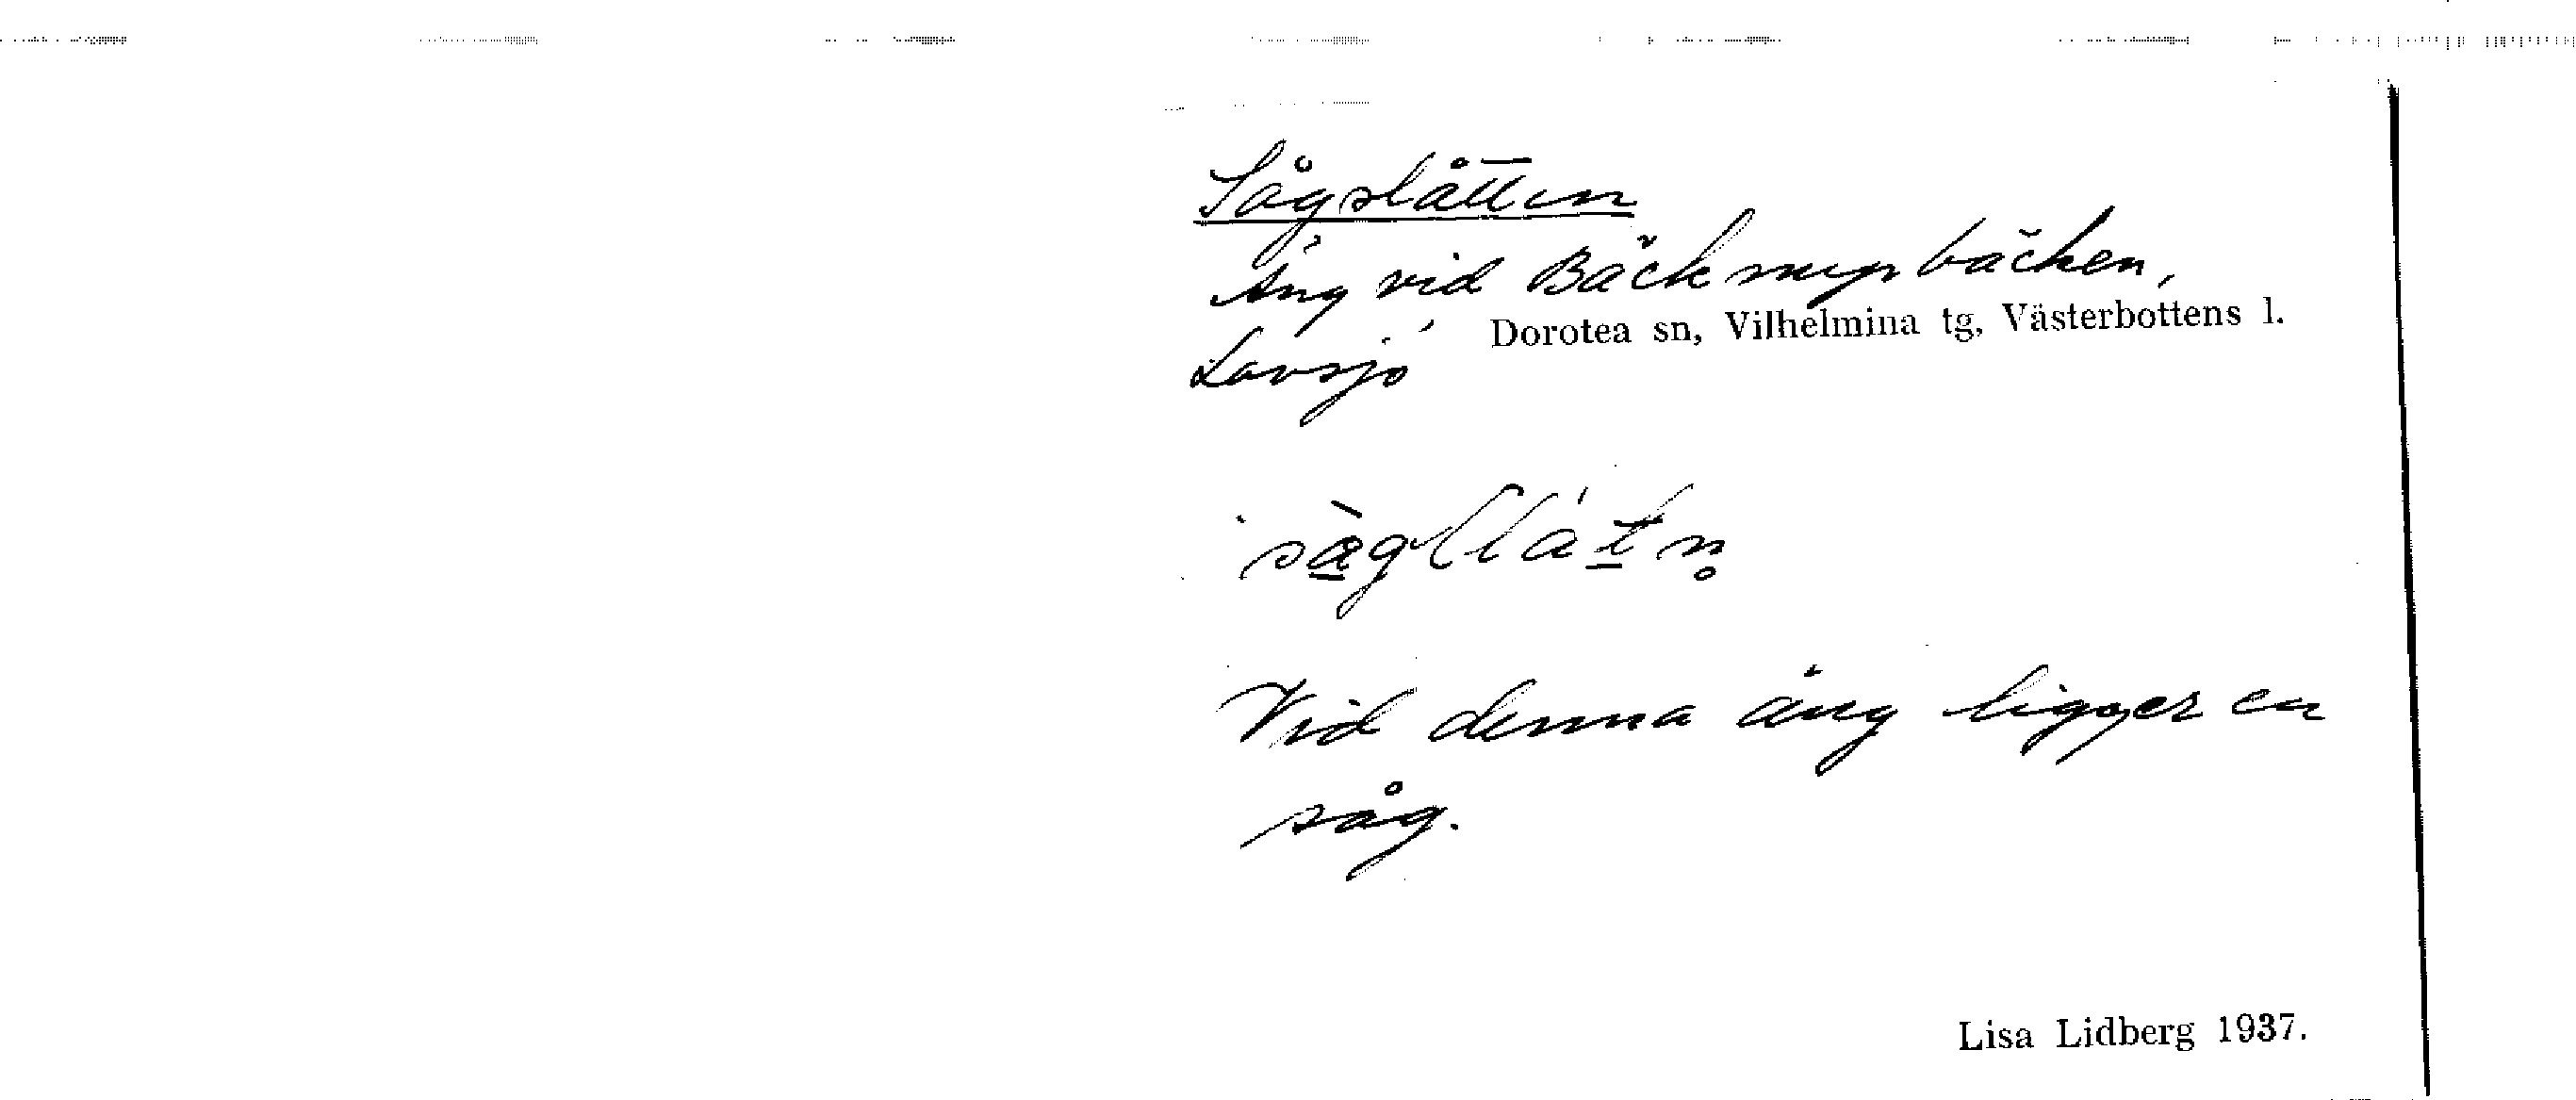 Sågslåtten
Äng vid Bäckmyrbäcken,
Dorotea sn, Vilhelmina tg, Västerbottens l.
Lavsjö
Vid denna äng ligger en
såg.
Lisa Lidberg 1937.